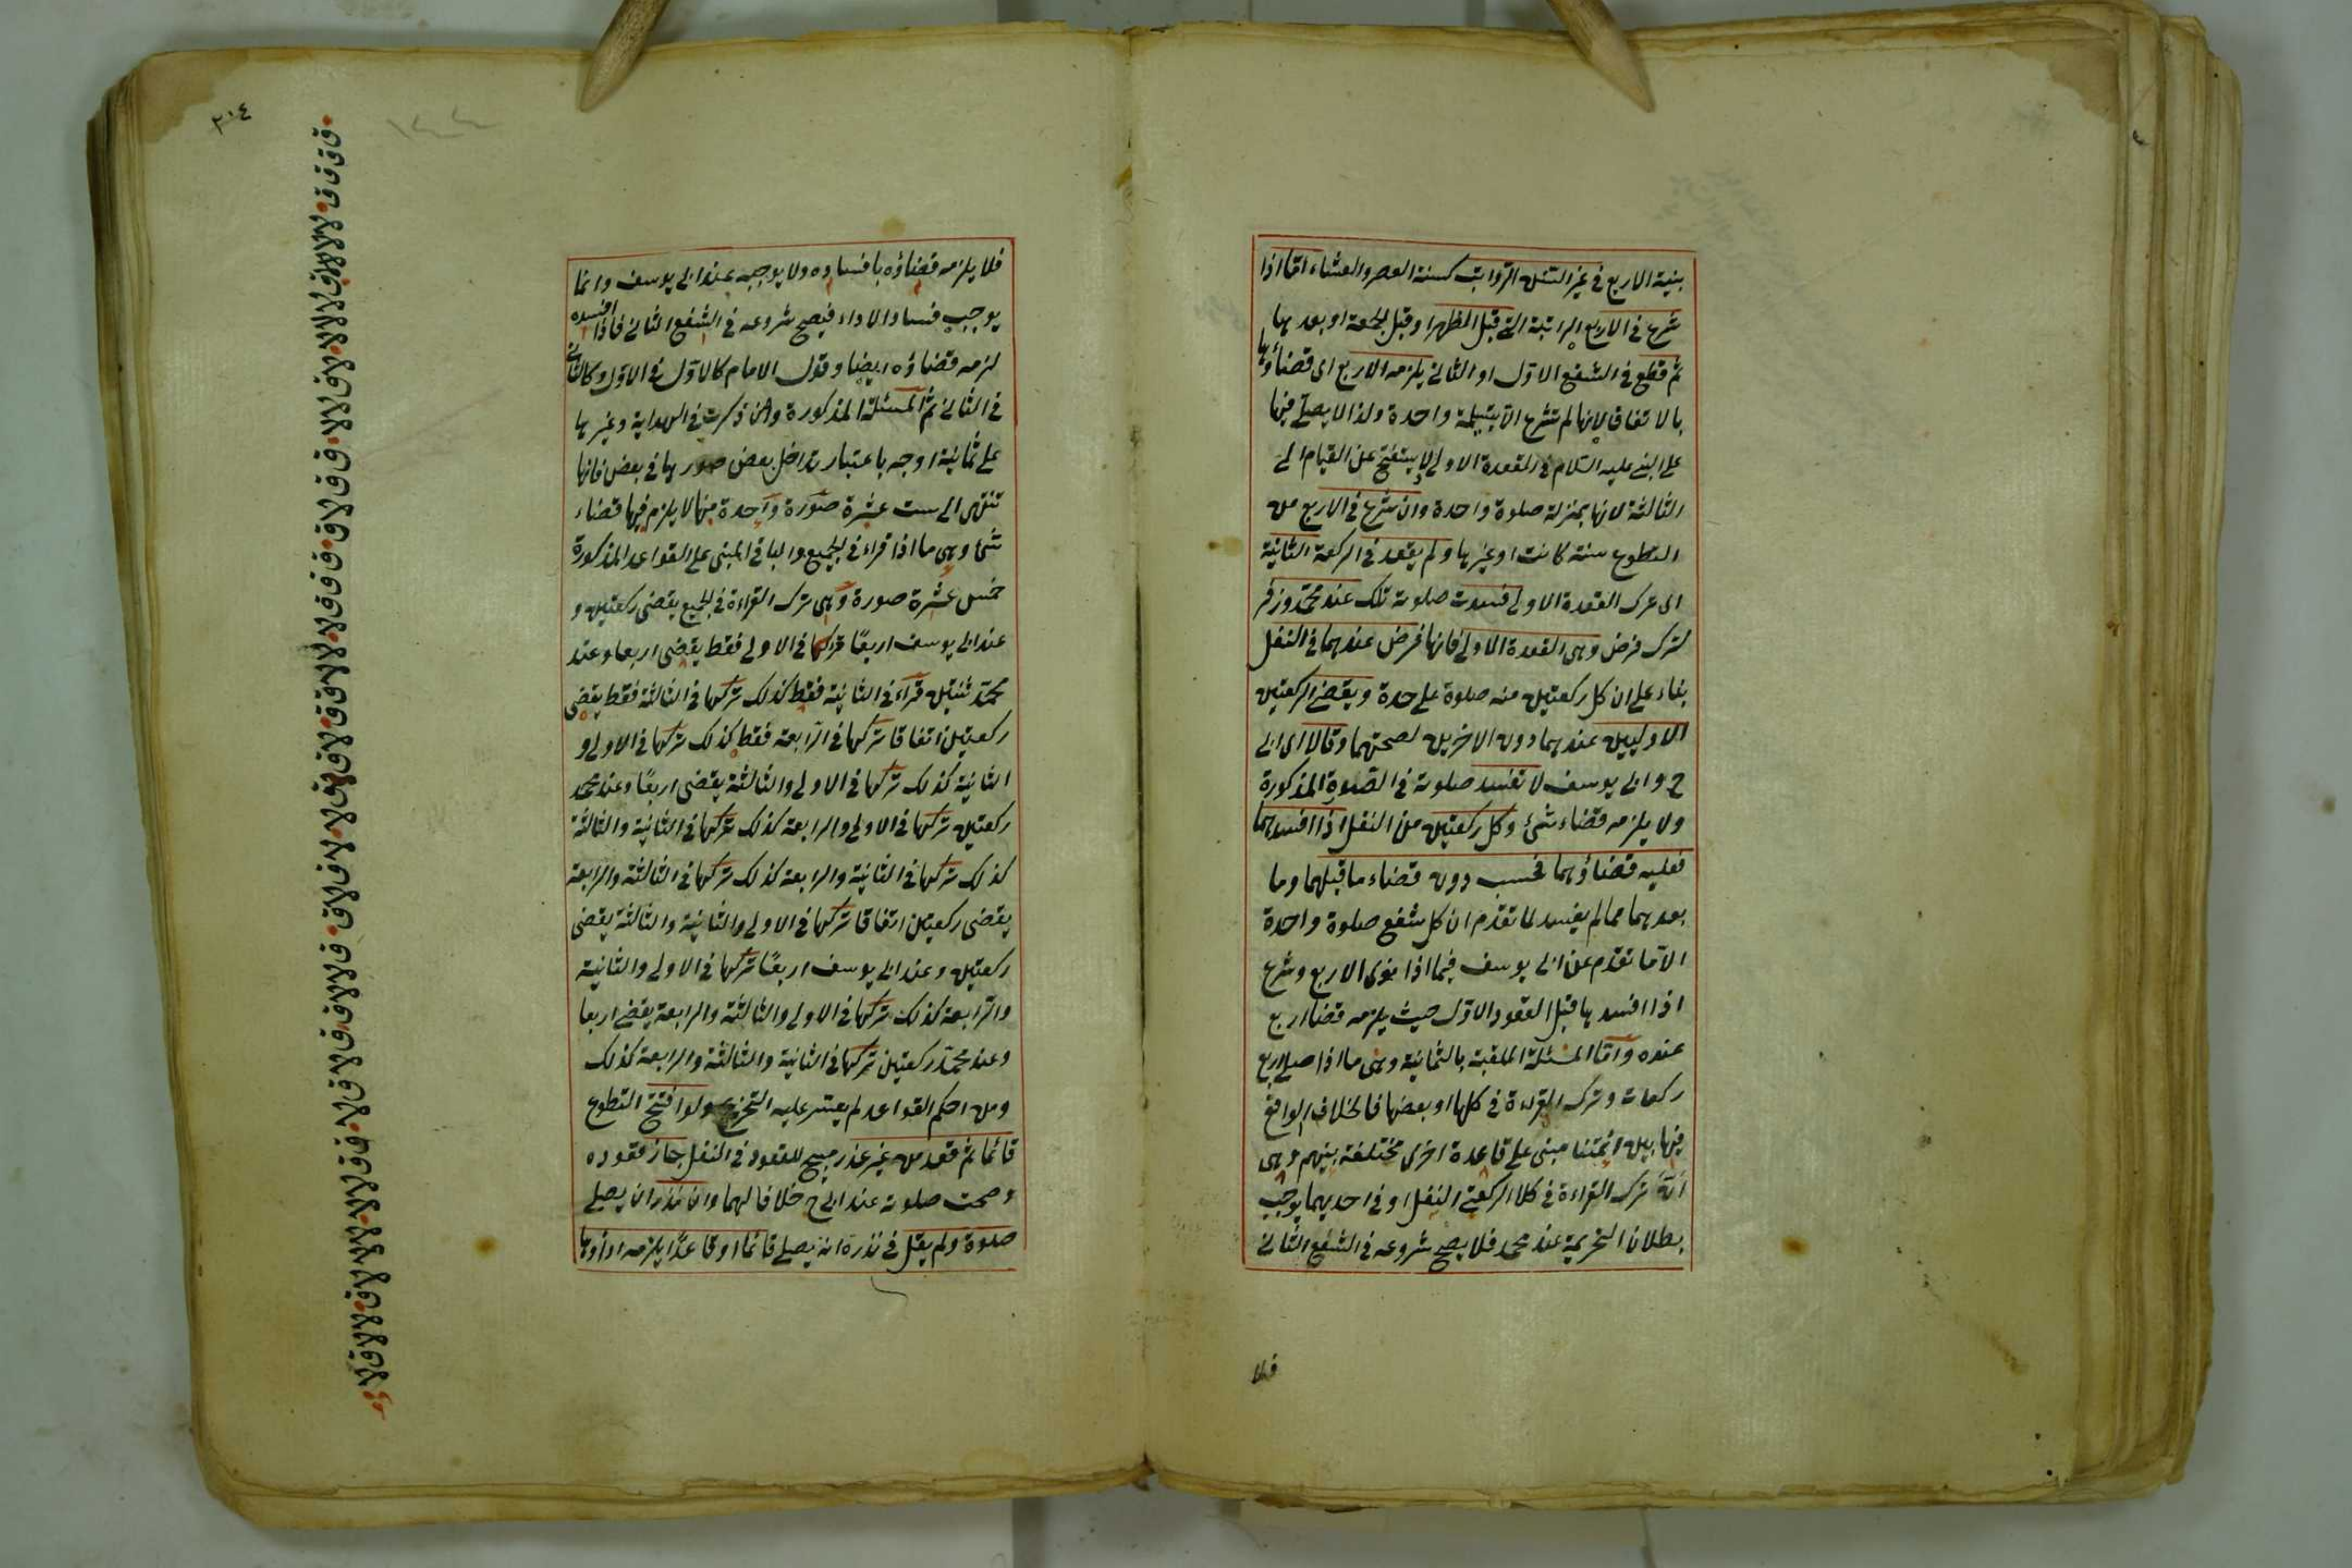 بنية الاربع في غير السنن الرواتب كسنة العصر والعشاء امّا اذا
شرع في الاربع الراتبة التي قبل الظهر او قبل الجمعة او بعدها
ثم قطع في الشفع الاوّل او الثاني يلزمه الاربع اى قضاؤها
بالاتفاق لانها لم تشرع الّا بتسليمة واحدة ولذا لا يصلّى فيها
على النبى عليه السّلام في القعدة الاولى ولا يستفتح عن القيام الى
الثالثة لانها بمنزلة صلوة واحدة وان شرع في الاربع من
التطوع سنة كانت او غيرها ولم يقعد في الركعة الثانية
اى ترك القعدة الاولى فسدت صلوته تلك عند محمّد وزفر
لترك فرض وهى القعدة الاولى فانها فرض عندهما في النفل
بناء على ان كل ركعتين منه صلوة على حدة ويقضى الركعتين
الاوليين عندهما دون الاخريين لصحتهما وقالا اى ابى
ح وابى يوسف لا تفسد صلوته في الصّلوة المذكورة
ولا يلزمه قضاء شئ وكل ركعتين من النفل اذا افسدهما
فعليه قضاؤهما فحسب دون قضاء ما قبلهما وما
بعدهما مما لم يفسد لما تقدّم ان كل شفع صلوة واحدة
الّا ما تقدّم عن ابى يوسف فيما اذا نوى الاربع وشرع
اذا افسدها قبل القعود الاوّل حيث يلزمه قضا اربع
عنده وامّا المسئلة الملقبة بالثمانية وهى ما اذا صلى اربع
ركعات وترك القراءة في كلها او بعضها فالخلاف الواقع
فيها بين ائمتنا مبنى على قاعدة اخرى مختلفة بينهم وهى
انّ ترك القراءة في كلا الركعتى النفل او في احديهما يوجب
بطلان التحريمة عند محمد فلا يصح شروعه في الشفع الثانى
فلا
٣٠٤
فلا يلزمه قضاؤه بافساده ولا يوجبه عند ابى يوسف وانما
يوجب فساد الاداء فيصح شروعه في الشفع الثانى فاذا افسده
لزمه قضاؤه ايضا وقول الامام كالاوّل في الاوّل وكالثانى
في الثانى ثم المسئلة المذكورة وان ذكرت في الهداية وغيرها
على ثمانية اوجه باعتبار تداخل بعض صورها في بعض فانها
تنتهى الى ست عشرة صورة واحدة منها لا يلزم فيها قضاء
شئ وهى ما اذا قراء في الجميع والباقى المبنى على القواعد المذكورة
خمس عشرة صورة وهى ترك القراءة في الجميع يقضى ركعتين و
عند ابى يوسف اربعًا تركها في الاولى فقط يقضى اربعا وعند
محمّد ثنتين قراء في الثانية فقط كذلك تركها في الثالثة فقط يقضى
ركعتين اتفاقا تركها في الرّابعة فقط كذلك تركها في الاولى و
الثانية كذلك تركها في الاولى والثالثة يقضى اربعًا وعند محمد
ركعتين تركها في الاولى والرابعة كذلك تركها في الثانية والثالثة
كذلك تركها في الثانية والرابعة كذلك تركها في الثالثة والرابعة
يقضى ركعتين اتفاقا تركها في الاولى والثانية والثالثة يقضى
ركعتين وعند ابى يوسف اربعًا تركها في الاولى والثانية
والرّابعة كذلك تركها في الاولى والثالثة والرابعة يقضى اربعا
وعند محمّد ركعتين تركها في الثانية والثالثة والرابعة كذلك
ومن احكم القواعد لم يعتسر عليه التخريج ولو افتتح التطوع
قائما ثم قعد من غير عذر مبيح للقعود في النفل جاز قعوده
وصحت صلوته عند ابى ح خلافا لهما وان نذر ان يصلى
صلوة ولم يقل في نذره انه يصلى قائما او قاعدًا يلزمه اداؤها